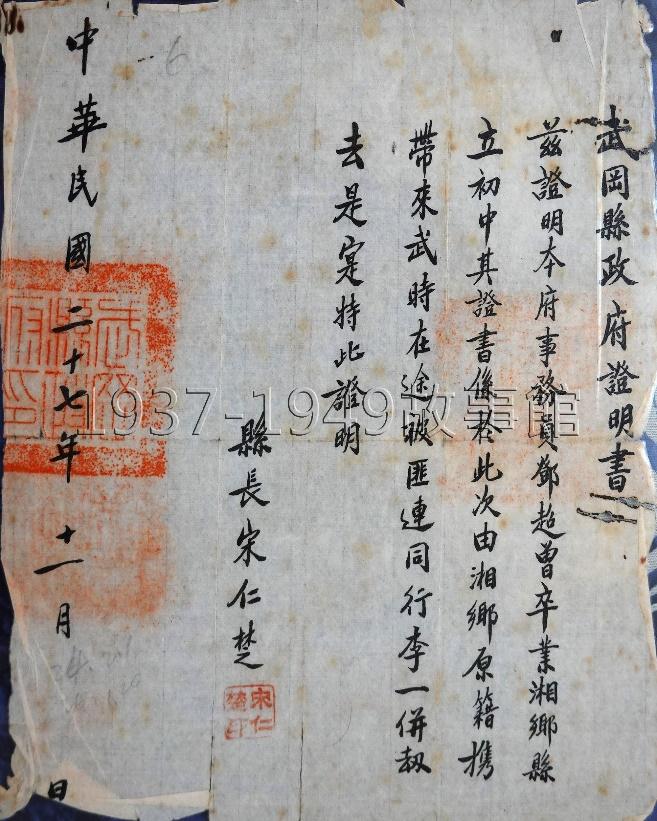 武岡縣政府證明書
茲證明本府事務員鄧超曾卒業湘鄉縣
立初中其證書係於此次由湘鄉原籍携
帶來武時在途被匪連同行李一併刼
去是寔特此證明
縣長宋仁楚
宋仁楚印
中華民國二十七年十一月 日
1937-1949故事館